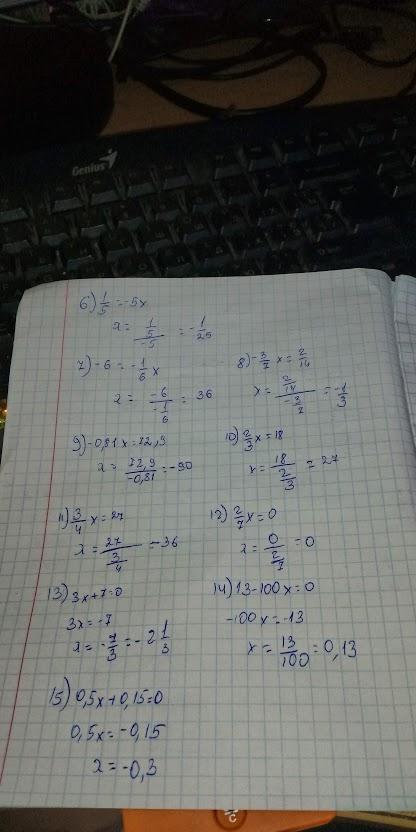 Genius
6) 1/5 = -5x
x = (1/5)/(-5) = -1/25
7) -6 = -1/6 x
x = (-6)/(-1/6) = 36
8) -3/7 x = 2/14
x = (2/14)/(-3/7) = -1/3
9) -0,81 x = 72,9
x = 72,9/-0,81 = -90
10) 2/3 x = 18
x = 18/(2/3) = 27
11) 3/4 x = 27
x = 27/(3/4) = 36
12) 2/7 x = 0
x = 0/(2/7) = 0
13) 3x + 7 = 0
3x = -7
x = -7/3 = -2 1/3
14) 13 - 100x = 0
-100x = -13
x = 13/100 = 0,13
15) 0,5x + 0,15 = 0
0,5x = -0,15
x = -0,3
°C